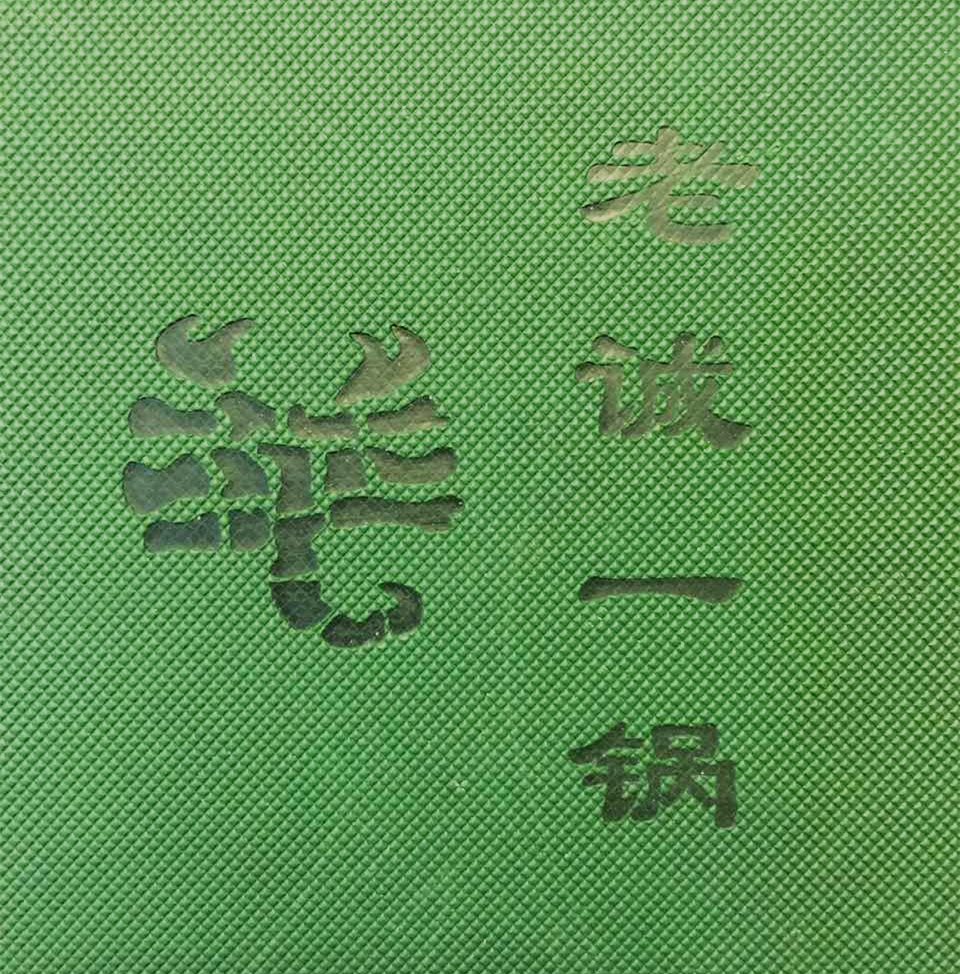 老诚一锅